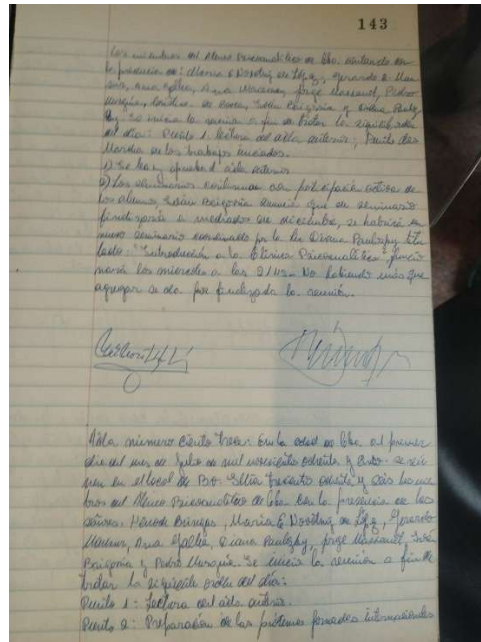 143
Los miembros del Ateneo Psicoanalítico de Cba. contando con
la presencia de: María E Doosting de López, Gerardo Man-
ser, Ana Gallia, Ana Jorge Massanet, Pedro
y Diana Paulozky
Se inicia la sesión a fin de tratar la siguiente orden
del día: Punto 1: lectura del acta anterior; Punto dos
Marcha de los trabajos iniciados.
1) Se lee y aprueba el acta anterior
2) Los seminarios continuan con participación activa de
los alumnos, anuncia que su seminario
finalizaría a mediados de diciembre, se habrirá un
nuevo seminario coordinado por la lic Diana Paulozky titu
lado: "Introducción a la Clínica Psicoanalítica", funcio
nará los miercoles a las No habiendo más que
agregar se da por finalizada la reunión.
Acta número ciento trece: En la ciudad de Cba. al primer
dia del mes de Julio de mil novecientos ochenta y se reú
nen en el local de Bv. Illia trecientos ochenta y seis los miem
bros del Ateneo Psicoanalítico de Cba con la presencia de los
señores: María E Doosting de López, Gerardo
Ana Gallia, Diana Paulozky, Jorge Massanet,
y Pedro Se inicia la reunión a fin de
tratar la siguiente orden del día:
Punto 1: Lectura del acta anterior.
Punto 2: Preparación de las próximas jornadas internacionales